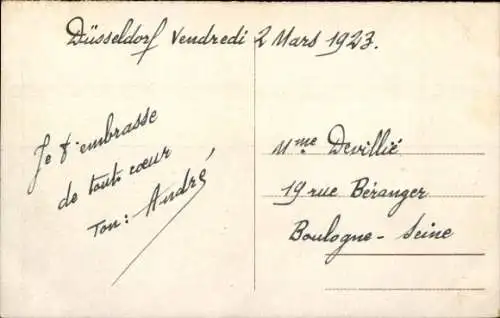 Düsseldorf Vendredi 2 Mars 1923.
Je t'embrasse
de tout cœur
Ton : André
Mme Devillié
19 rue Béranger
Boulogne - Seine